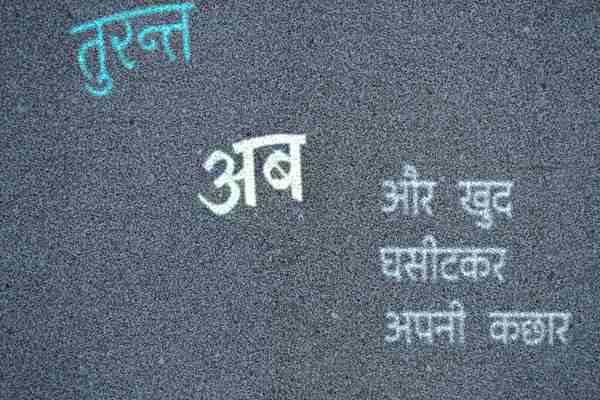 तुरन्त
अब
और खुद
घसीटकर
अपनी कछार